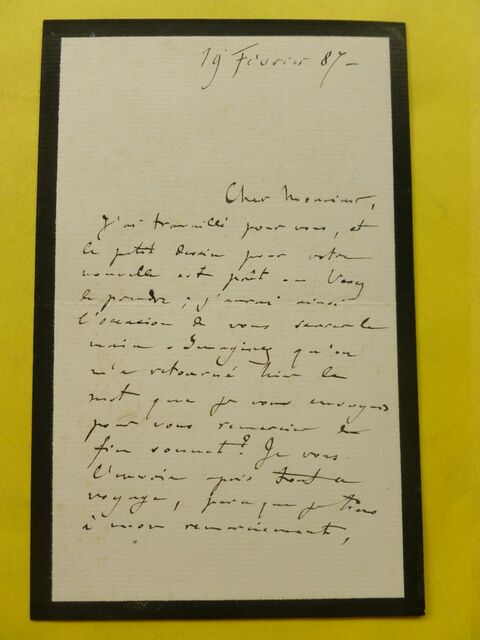 19 Février 87 -
Cher Monsieur,
J'ai travaillé pour vous, et
le petit dessin pour votre
nouvelle est prêt - Venez
le prendre ; j'aurai ainsi
l'occasion de vous serrer la
main - Imaginez qu'on
m'a retourné hier le
mot que je vous envoyais
pour vous remercier du
fin sonnet? Je vous
l'envoie après tout ce
voyage, parce que je tiens
à mon remerciement,